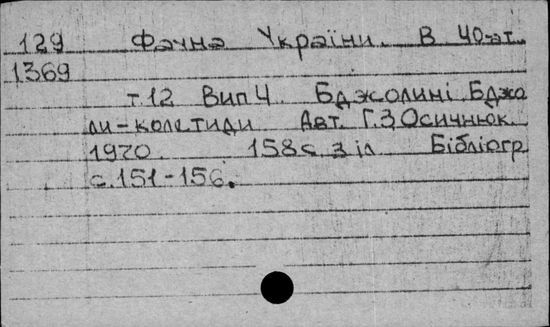 129 Фауна України. В 40-а т.
1369
т.12 Вип 4 Бджолині Бджо
ли-колетиди Авт. Г.З Осичнюк
1970. 158 с. з іл Бібліогр
с.151-156.